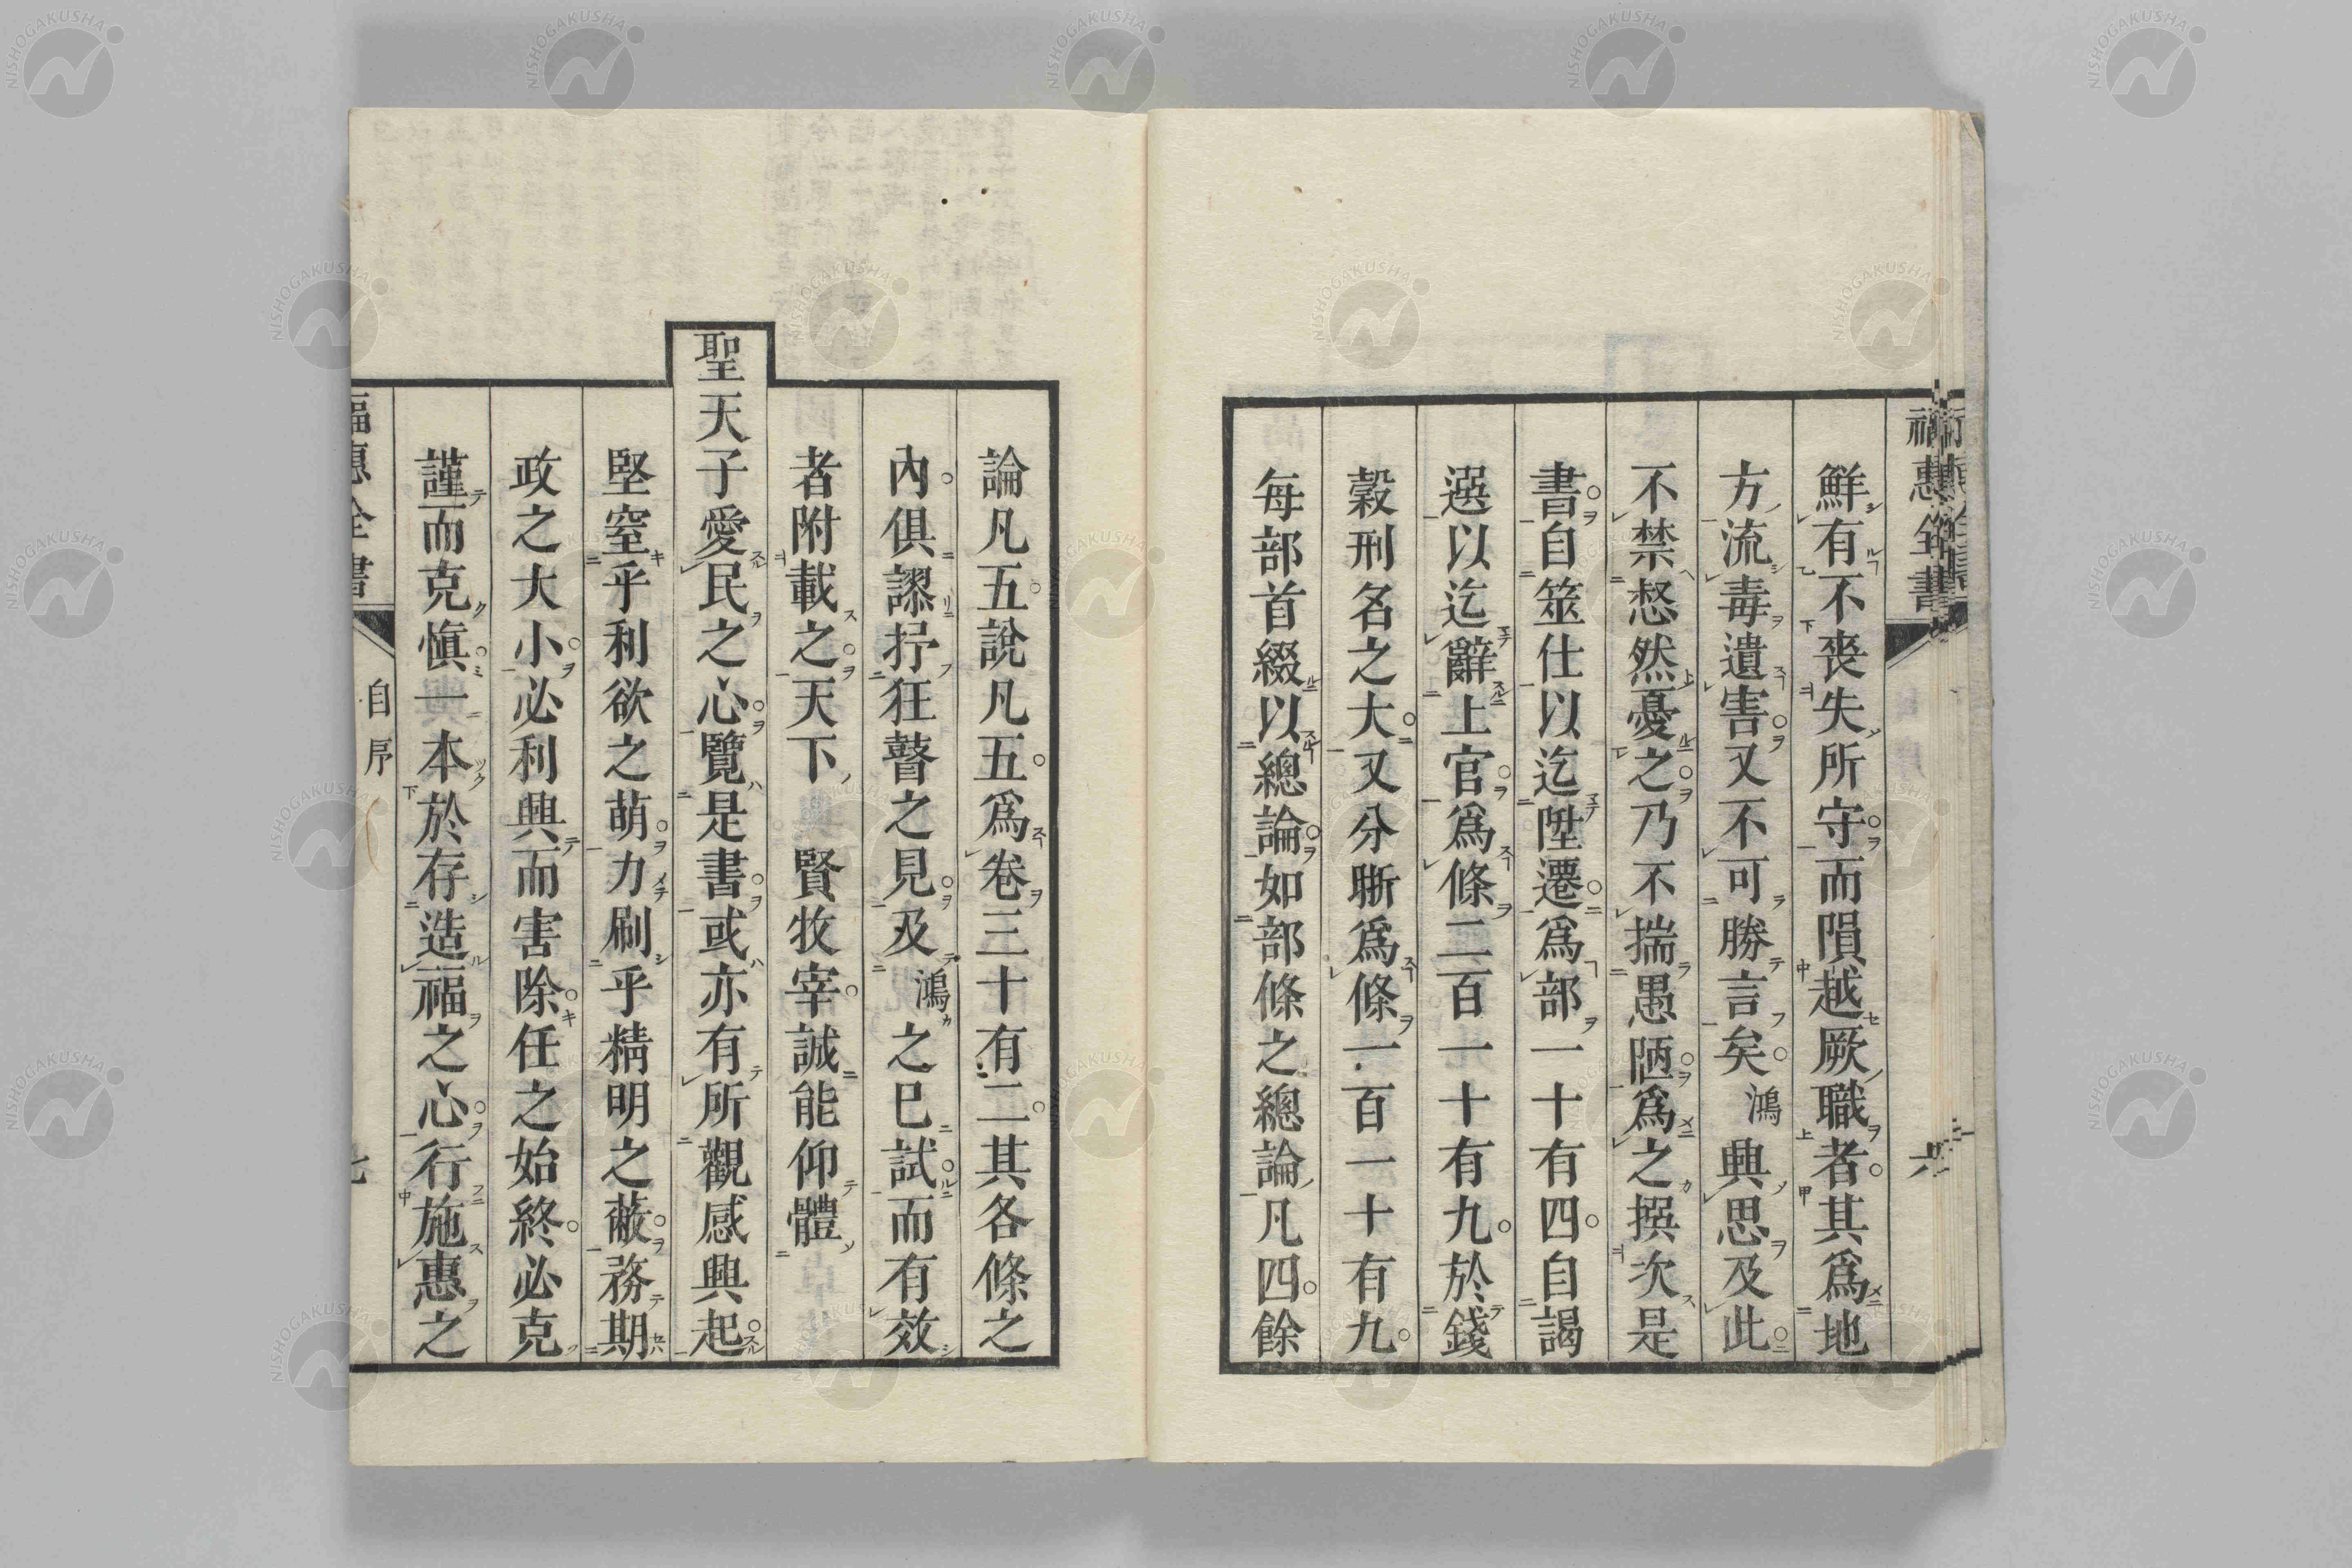 福惠全書
六
鮮有不喪失所守而隕越厥職者其爲地
方流毒遺害又不可勝言矣鴻興思及此
不禁愁然憂之乃不揣愚陋爲之撰次是
書自筮仕以迄陞遷爲部一十有四自謁
選以迄辭上官爲條二百一十有九於錢
穀刑名之大又分晣爲條一百一十有九
每部首綴以總論如部條之總論凡四餘
論凡五說凡五爲卷三十有二其各條之
內俱謬抒狂瞽之見及鴻之已試而有效
者附載之天下賢牧宰誠能仰體
聖天子愛民之心覽是書或亦有所觀感興起
堅窒乎利欲之萌力刷乎精明之蔽務期
政之大小必利興而害除任之始終必克
謹而克愼一本於存造福之心行施惠之
福惠全書
自序
七
NISHOGAKUSHA